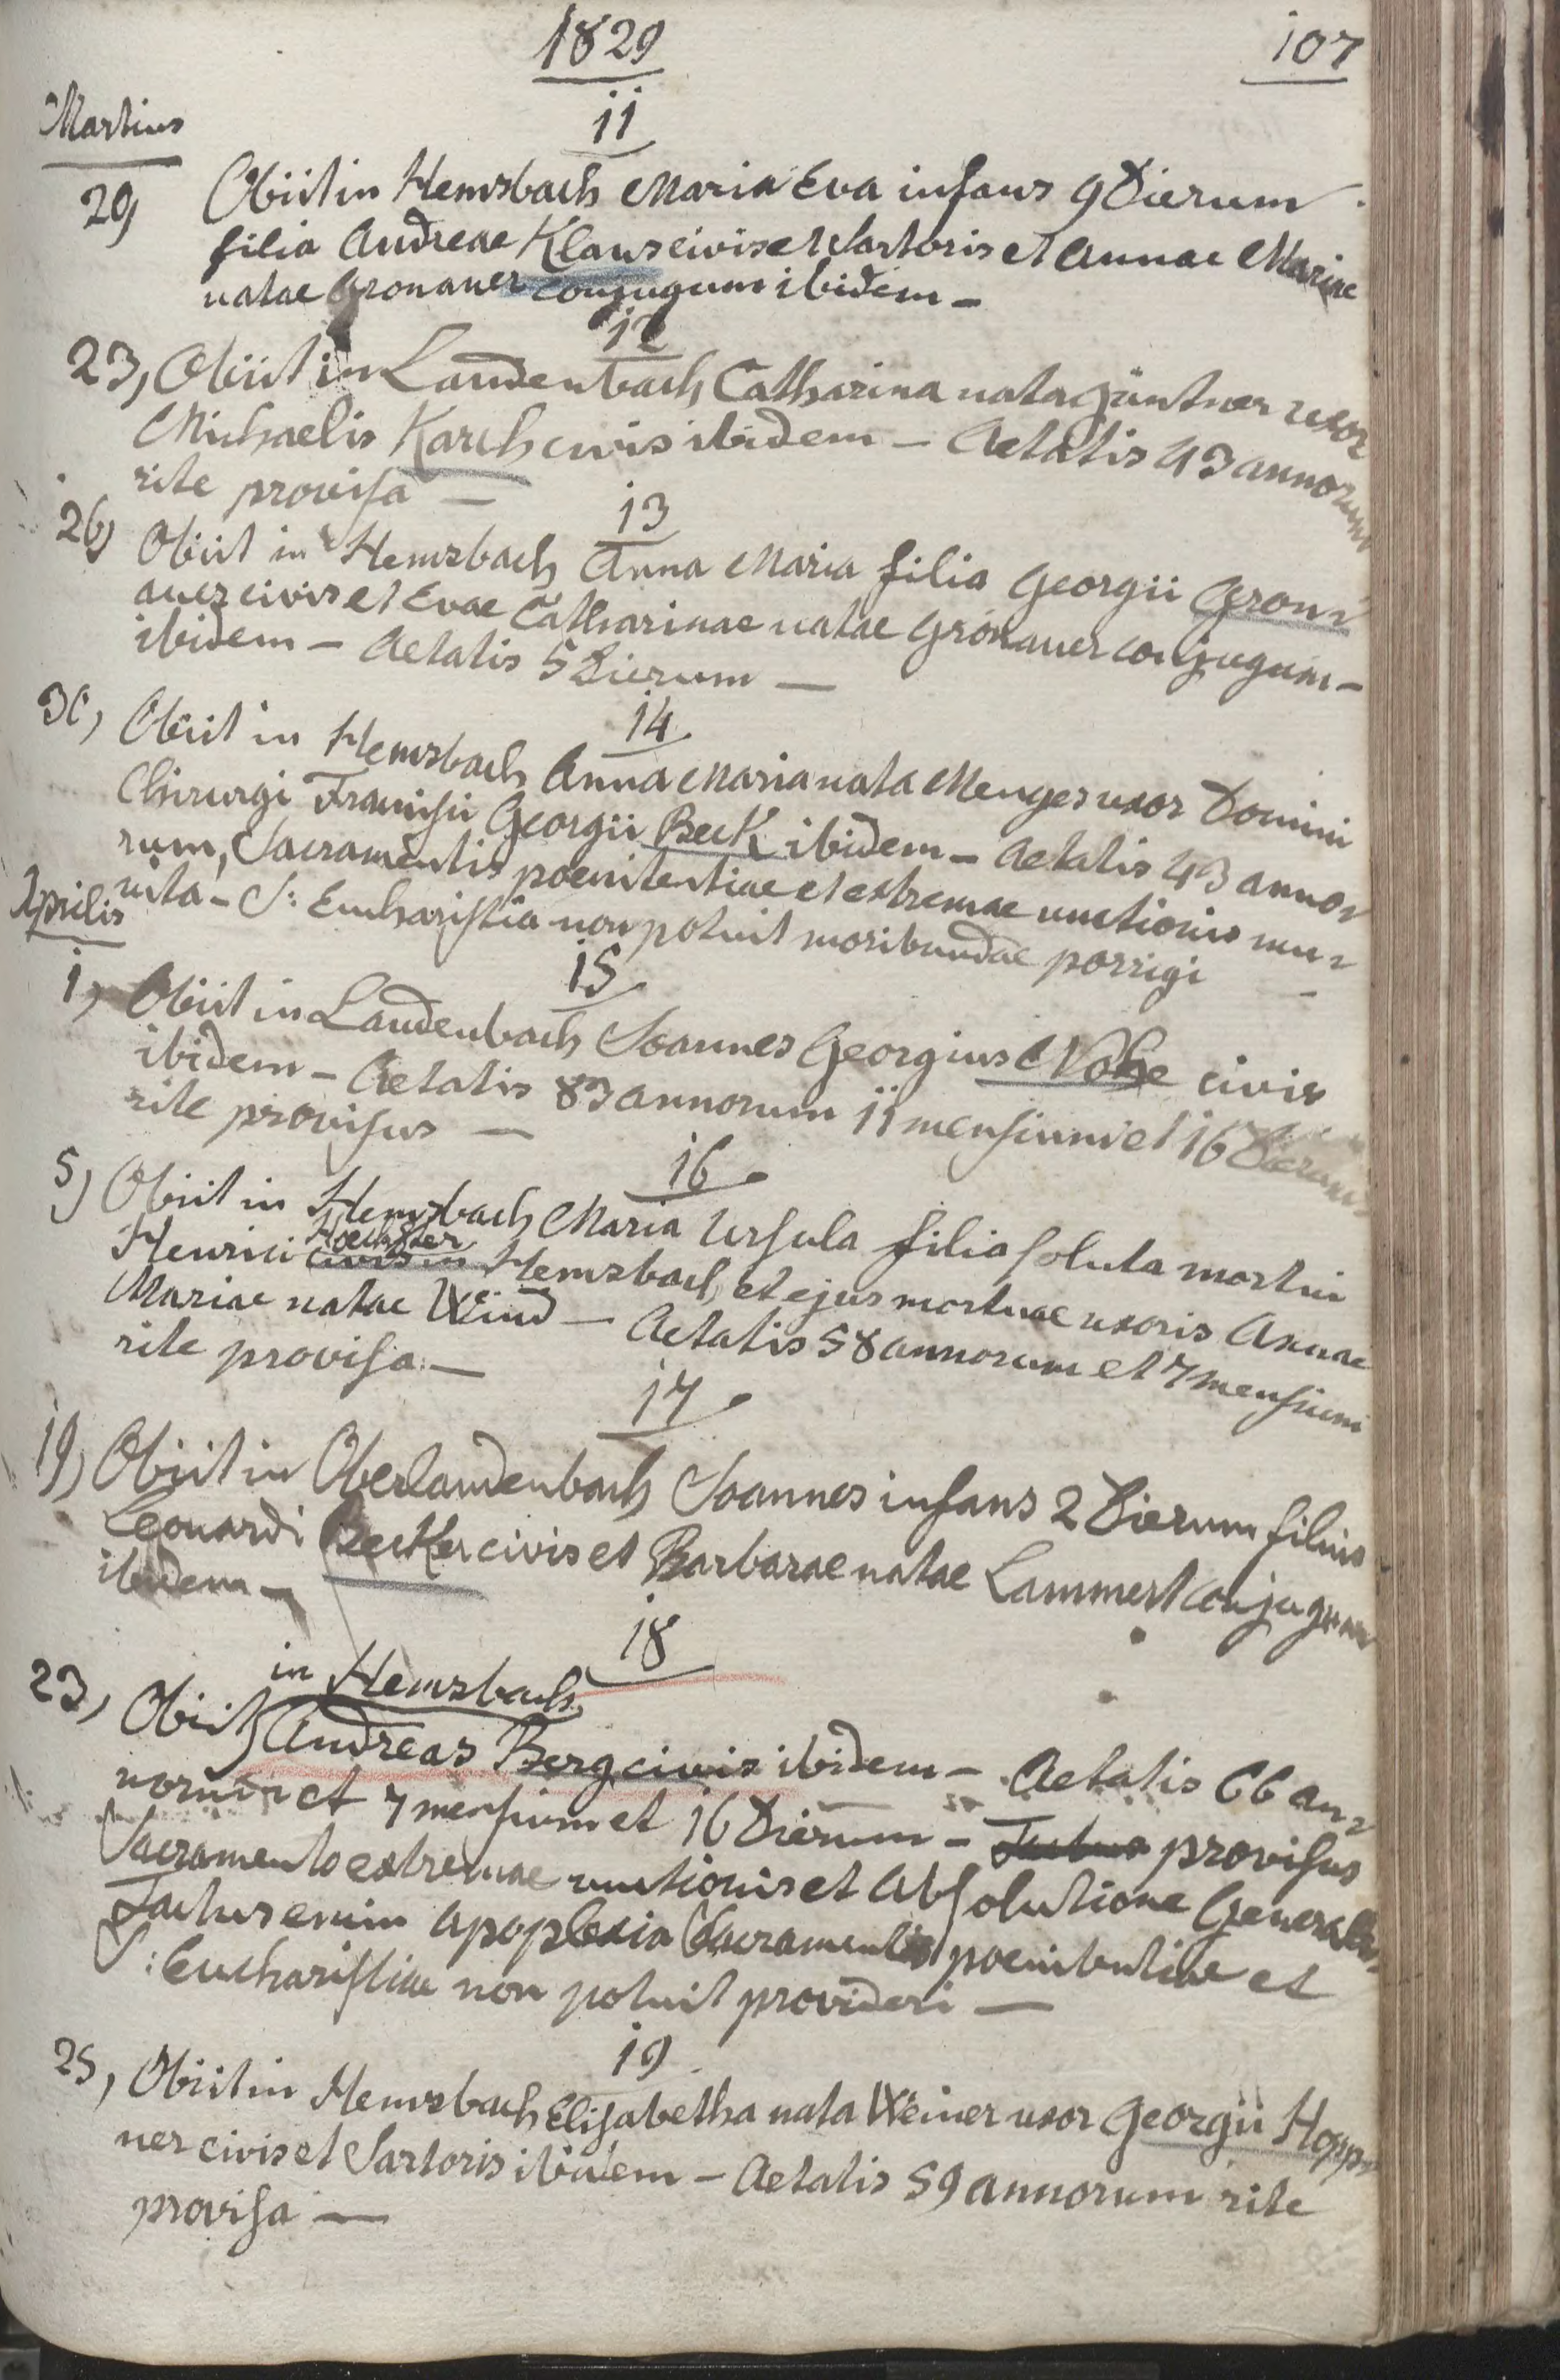 1829
107
Martius
11
20, Obiit in Hemsbach Maria Eva infans 9 Dierum
filia Andreae Klaus civis et Sartoris et Annae Mariae
natae Gronauer conjugum ibidem –
12
23, Obiit in Laudenbach Catharina nata Güntner uxor
Michaelis Karch civis ibidem – Aetatis 43 annorum
rite provisa –
13
26, Obiit in Hemsbach Anna Maria filia Georgii Gron-
auer civis et Evae Catharinae natae Gronauer conjugum –
ibidem – Aetatis 5 Dierum –
14
30, Obiit in Hemsbach Anna Maria nata Menges uxor Domini
Chirurgi Francisci Georgii Beck ibidem – Aetatis 43 anno-
rum, Sacramentis poenitentiae et extremae unctionis mu-
nita – S: Eucharistia non potuit moribundae porrigi –
Aprilis
15
1, Obiit in Laudenbach Joannes Georgius Nohe civis
ibidem – Aetatis 83 annorum 11 mensium et 16 Dierum
rite provisus –
16
5, Obiit in Hemsbach Maria Ursula filia soluta mortui
Hoechster
Henrici civis in Hemsbach, et ejus mortuae uxoris Annae
Mariae natae Weind – Aetatis 58 annorum et 7 mensium
rite provisa –
17
19, Obiit in Oberlaudenbach Joannes infans 2 Dierum filius
Leonardi Becker civis et Barbarae natae Lammert conjugum
ibidem –
18
in Hemsbach
23, Obiit Andreas Berg civis ibidem – Aetatis 66 an-
norum et 7 mensium et 16 Dierum – provisus
Sacramento extremae unctionis et Absolutione Generali
Tactus enim apoplexia Sacramentis poenitentiae et
S: Eucharistiae non potuit provideri –
19
25, Obiit in Hemsbach Elisabetha nata Weiner uxor Georgii Hopp-
ner civis et Sartoris ibidem – Aetatis 59 annorum rite
provisa –